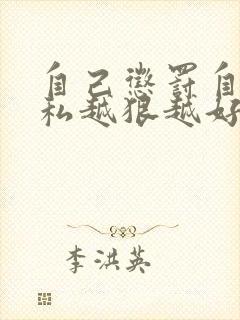 自己惩罚自
私越狠越好
李洪英